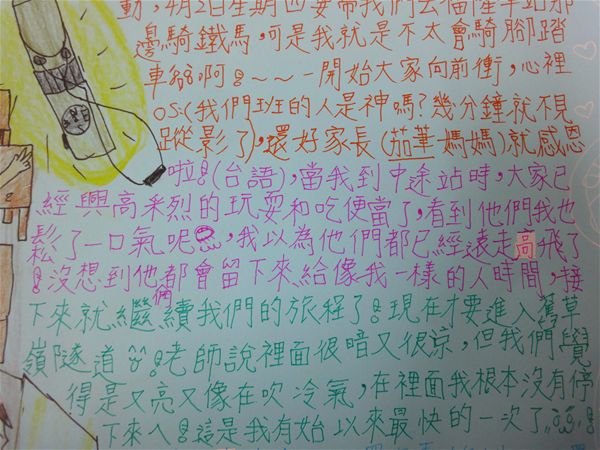 動，4月2日星期四要帶我們去福隆車站那
邊騎鐵馬，可是我就是不太會騎腳踏
車啊！～～一開始大家向前衝，心裡
OS:(我們班的人是神嗎?幾分鐘就不見
蹤影了)，還好家長(茄華媽媽)就感恩
啦！(台語)，當我到中途站時，大家已
經興高采烈的玩耍和吃便當了，看到他們我也
鬆了一口氣呢，我以為他們都已經遠走高飛了
！沒想到他們都會留下來給像我一樣的人時間，接
下來就繼續我們的旅程了！現在才要進入舊草
嶺隧道！老師說裡面很暗又很涼，但我們覺
得是又亮又像在吹冷氣，在裡面我根本沒有停
下來！這是我有始以來最快的一次了！